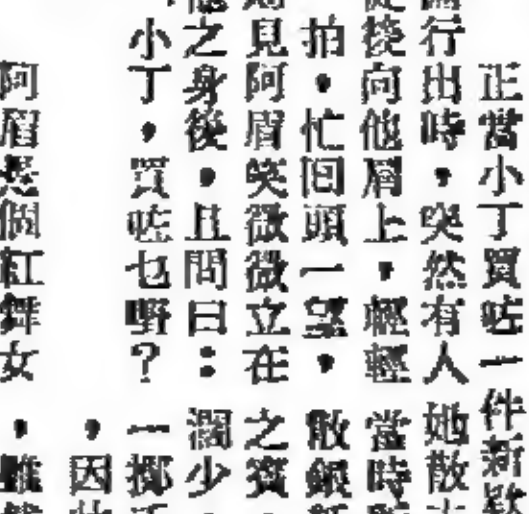 正當小丁買咗一
行出時，突然有人
後向他肩上，輕輕
拍，忙回頭一望，
見阿眉笑微微立在
之身後，且問曰：
小丁，買咗乜嘢？
阿眉是個紅舞女
件新款
她散
當時
散銀
之賓
闊少
一擲
，因
，雖